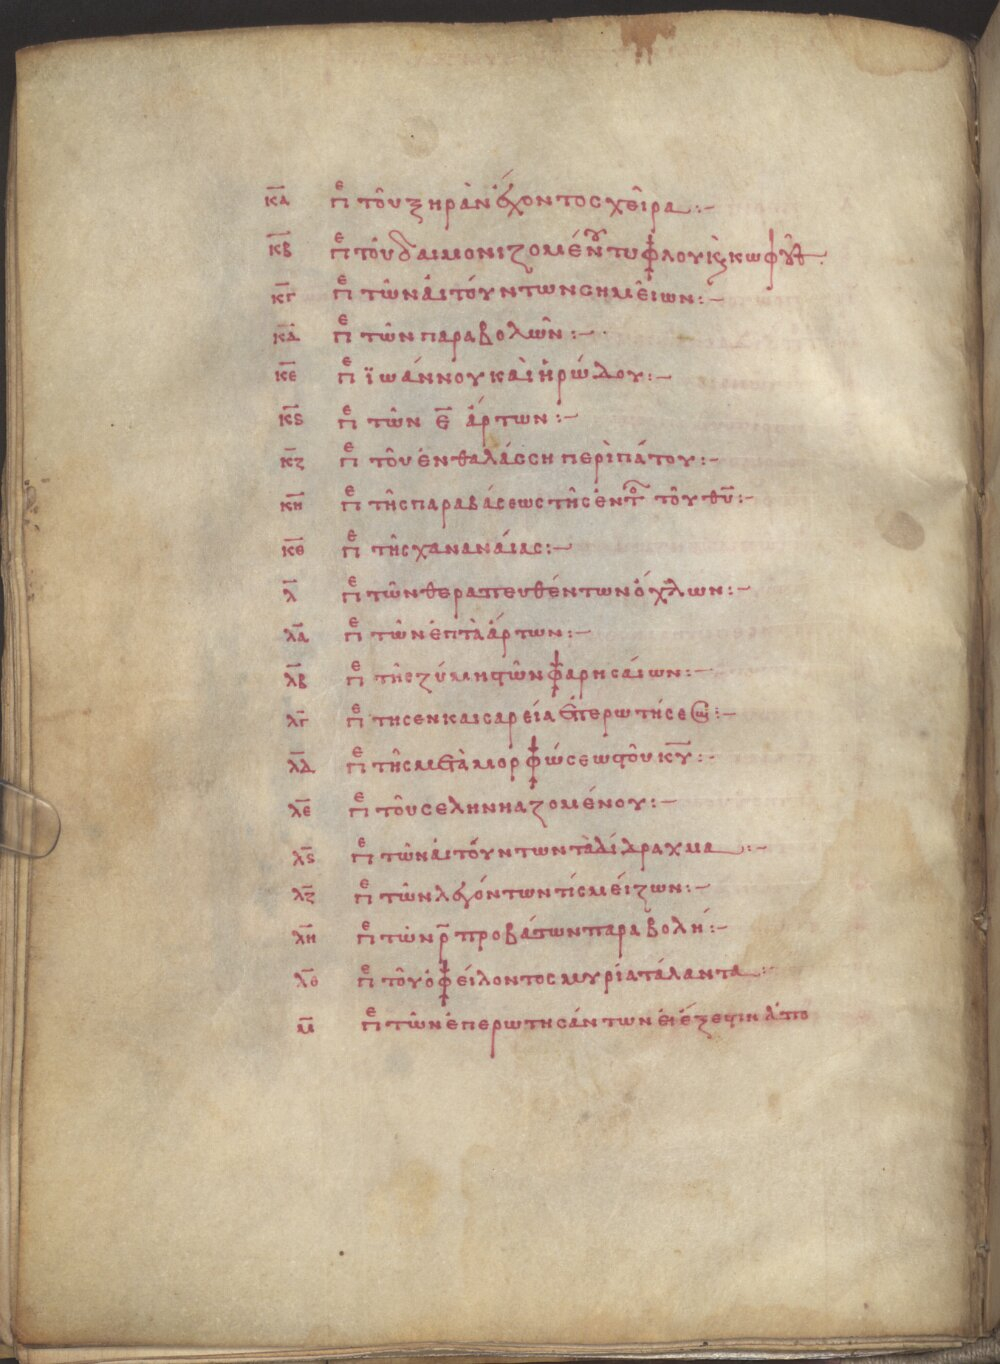 κα πε τοῦ ξηρὰν ἔχοντος χεῖρα :-
κβ πε τοῦ δαιμονιζομένου τυφλοῦ κς κωφοῦ :-
κγ πε τῶν ἀιτούντων σημεῖων :-
κδ πε τῶν παραβολῶν :-
κε πε ϊωάννου καὶ ἡρώδου :-
κς πε τῶν ε ἄρτων :-
κζ πε τοῦ ἐν θαλάσση περὶπάτου :-
κη πε τῆς παραβάσεως τῆς ἐντο τοῦ θυ :-
κθ πε τῆς χανανάιας :-
λ πε τῶν θεραπευθέντων ὄχλων :-
λα πε τῶν ἑπτὰ ἄρτων :-
λβ πε τῆς ζύμης τῶν φαρησάιων :-
λγ πε τησ εν καισαρεία ἐπερωτήσεως :-
λδ πε τῆς μετὰμορφώσεως τοῦ κυ :-
λε πε τοῦ σεληνηαζομένου :-
λς πε τῶν ἀιτούντων τὰ δίδραχμα :-
λζ πε τῶν λεγόντων τίς μείζων :-
λη πε τῶν ρ προβάτων παραβολή :-
λθ πε τοῦ ὀφείλοντος μυρία τάλαντα :-
μ πε τῶν ἐπερωτησάντων εἰ ἔξεστιν ἀπο